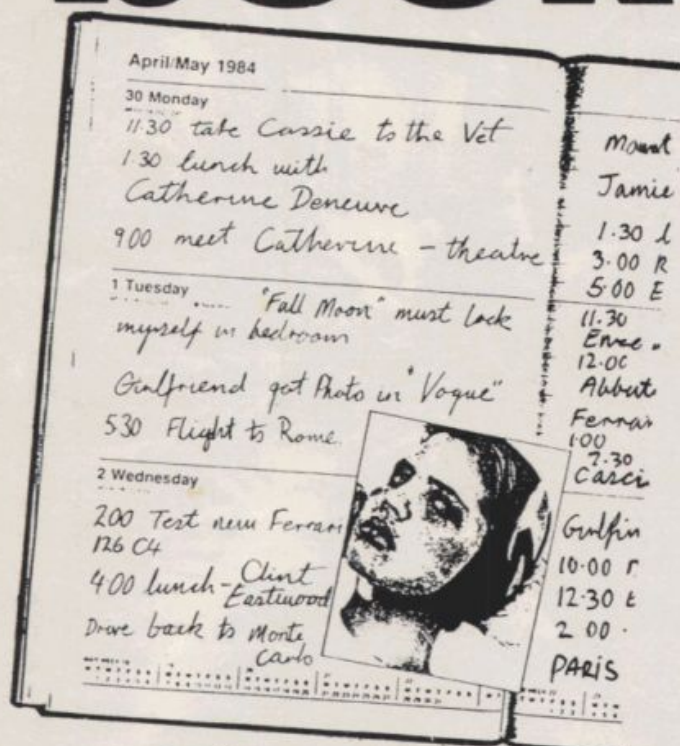 April/May 1984
30 Monday
11.30 take Cassie to the Vet
1.30 lunch with
Catherine Deneuve
9.00 meet Catherine - theatre
1 Tuesday
"Fall Moon" must lock
myself in bedroom
Girlfriend got Photo in "Vogue"
5.30 Flight to Rome.
2 Wednesday
2.00 Test new Ferrari
126 C4
4.00 lunch - Clint
Eastwood
Drove back to Monte
Carlo
Jamie
1.30 l
3.00 R
5.00 E
11.30
12.00
Ferrar
1.00
2.30
10.00 r
12.30 t
2.00
PARIS